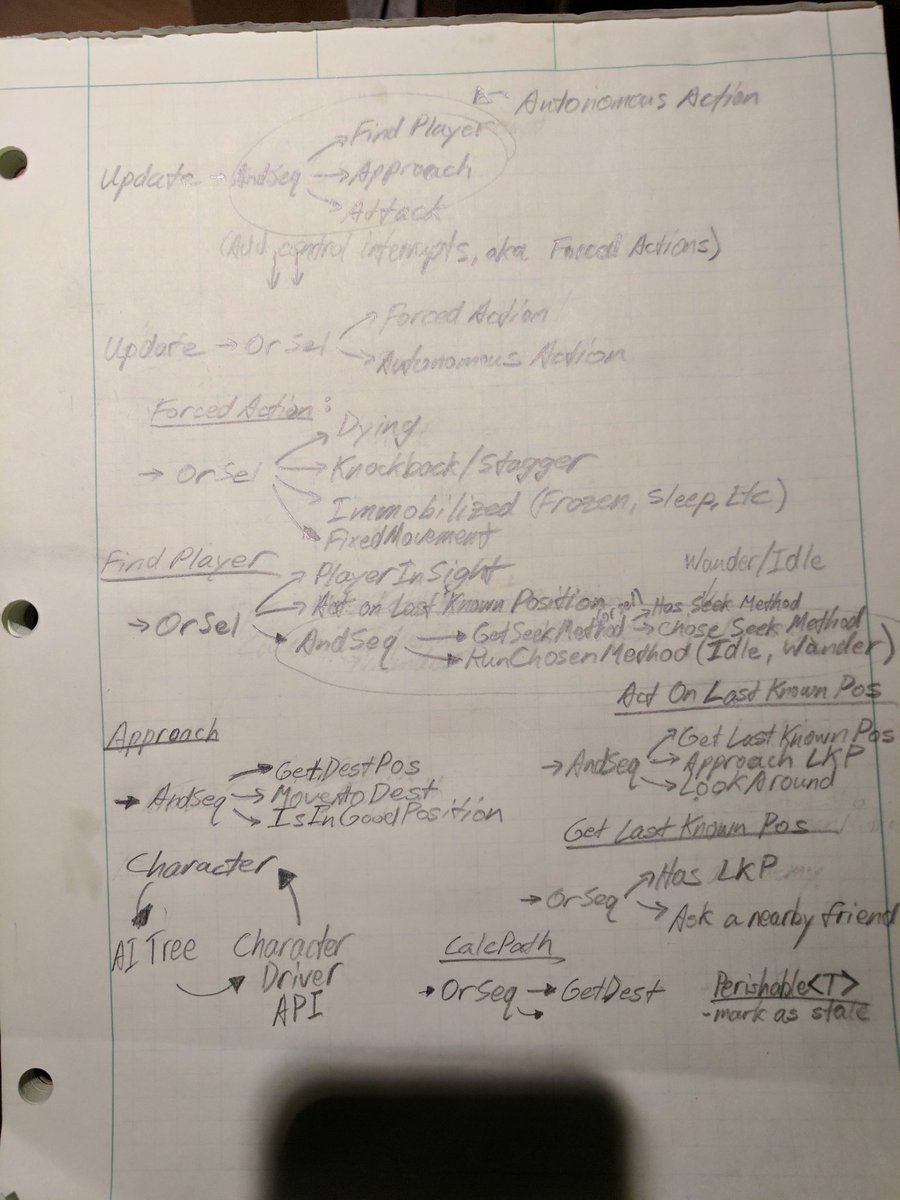 Autonomous Action
Find Player
Update → AndSeq → Approach
Attack
(Add control interrupts, aka Forced Actions)
Forced Action
Update → OrSel
Autonomous Action
Forced Action:
Dying
→ OrSel → Knockback/Stagger
Immobilized (Frozen, Sleep, Etc)
FixedMovement
Find Player
Wander/Idle
PlayerInSight
→ OrSel → Act on Last Known Position
AndSeq → GetSeekMethod or sel → Has Seek Method
→ Chose Seek Method
→ RunChosenMethod (Idle, Wander)
Act On Last Known Pos
Get Last Known Pos
→ AndSeq → Approach LKP
→ Look Around
Approach
GetDestPos
→ AndSeq → MoveToDest
IsInGoodPosition
Get Last Known Pos
Has LKP
→ OrSeq
Ask a nearby friend
Character
AI Tree
Character
Driver
API
CalcPath
→ OrSeq → GetDest
Perishable<T>
-mark as stale